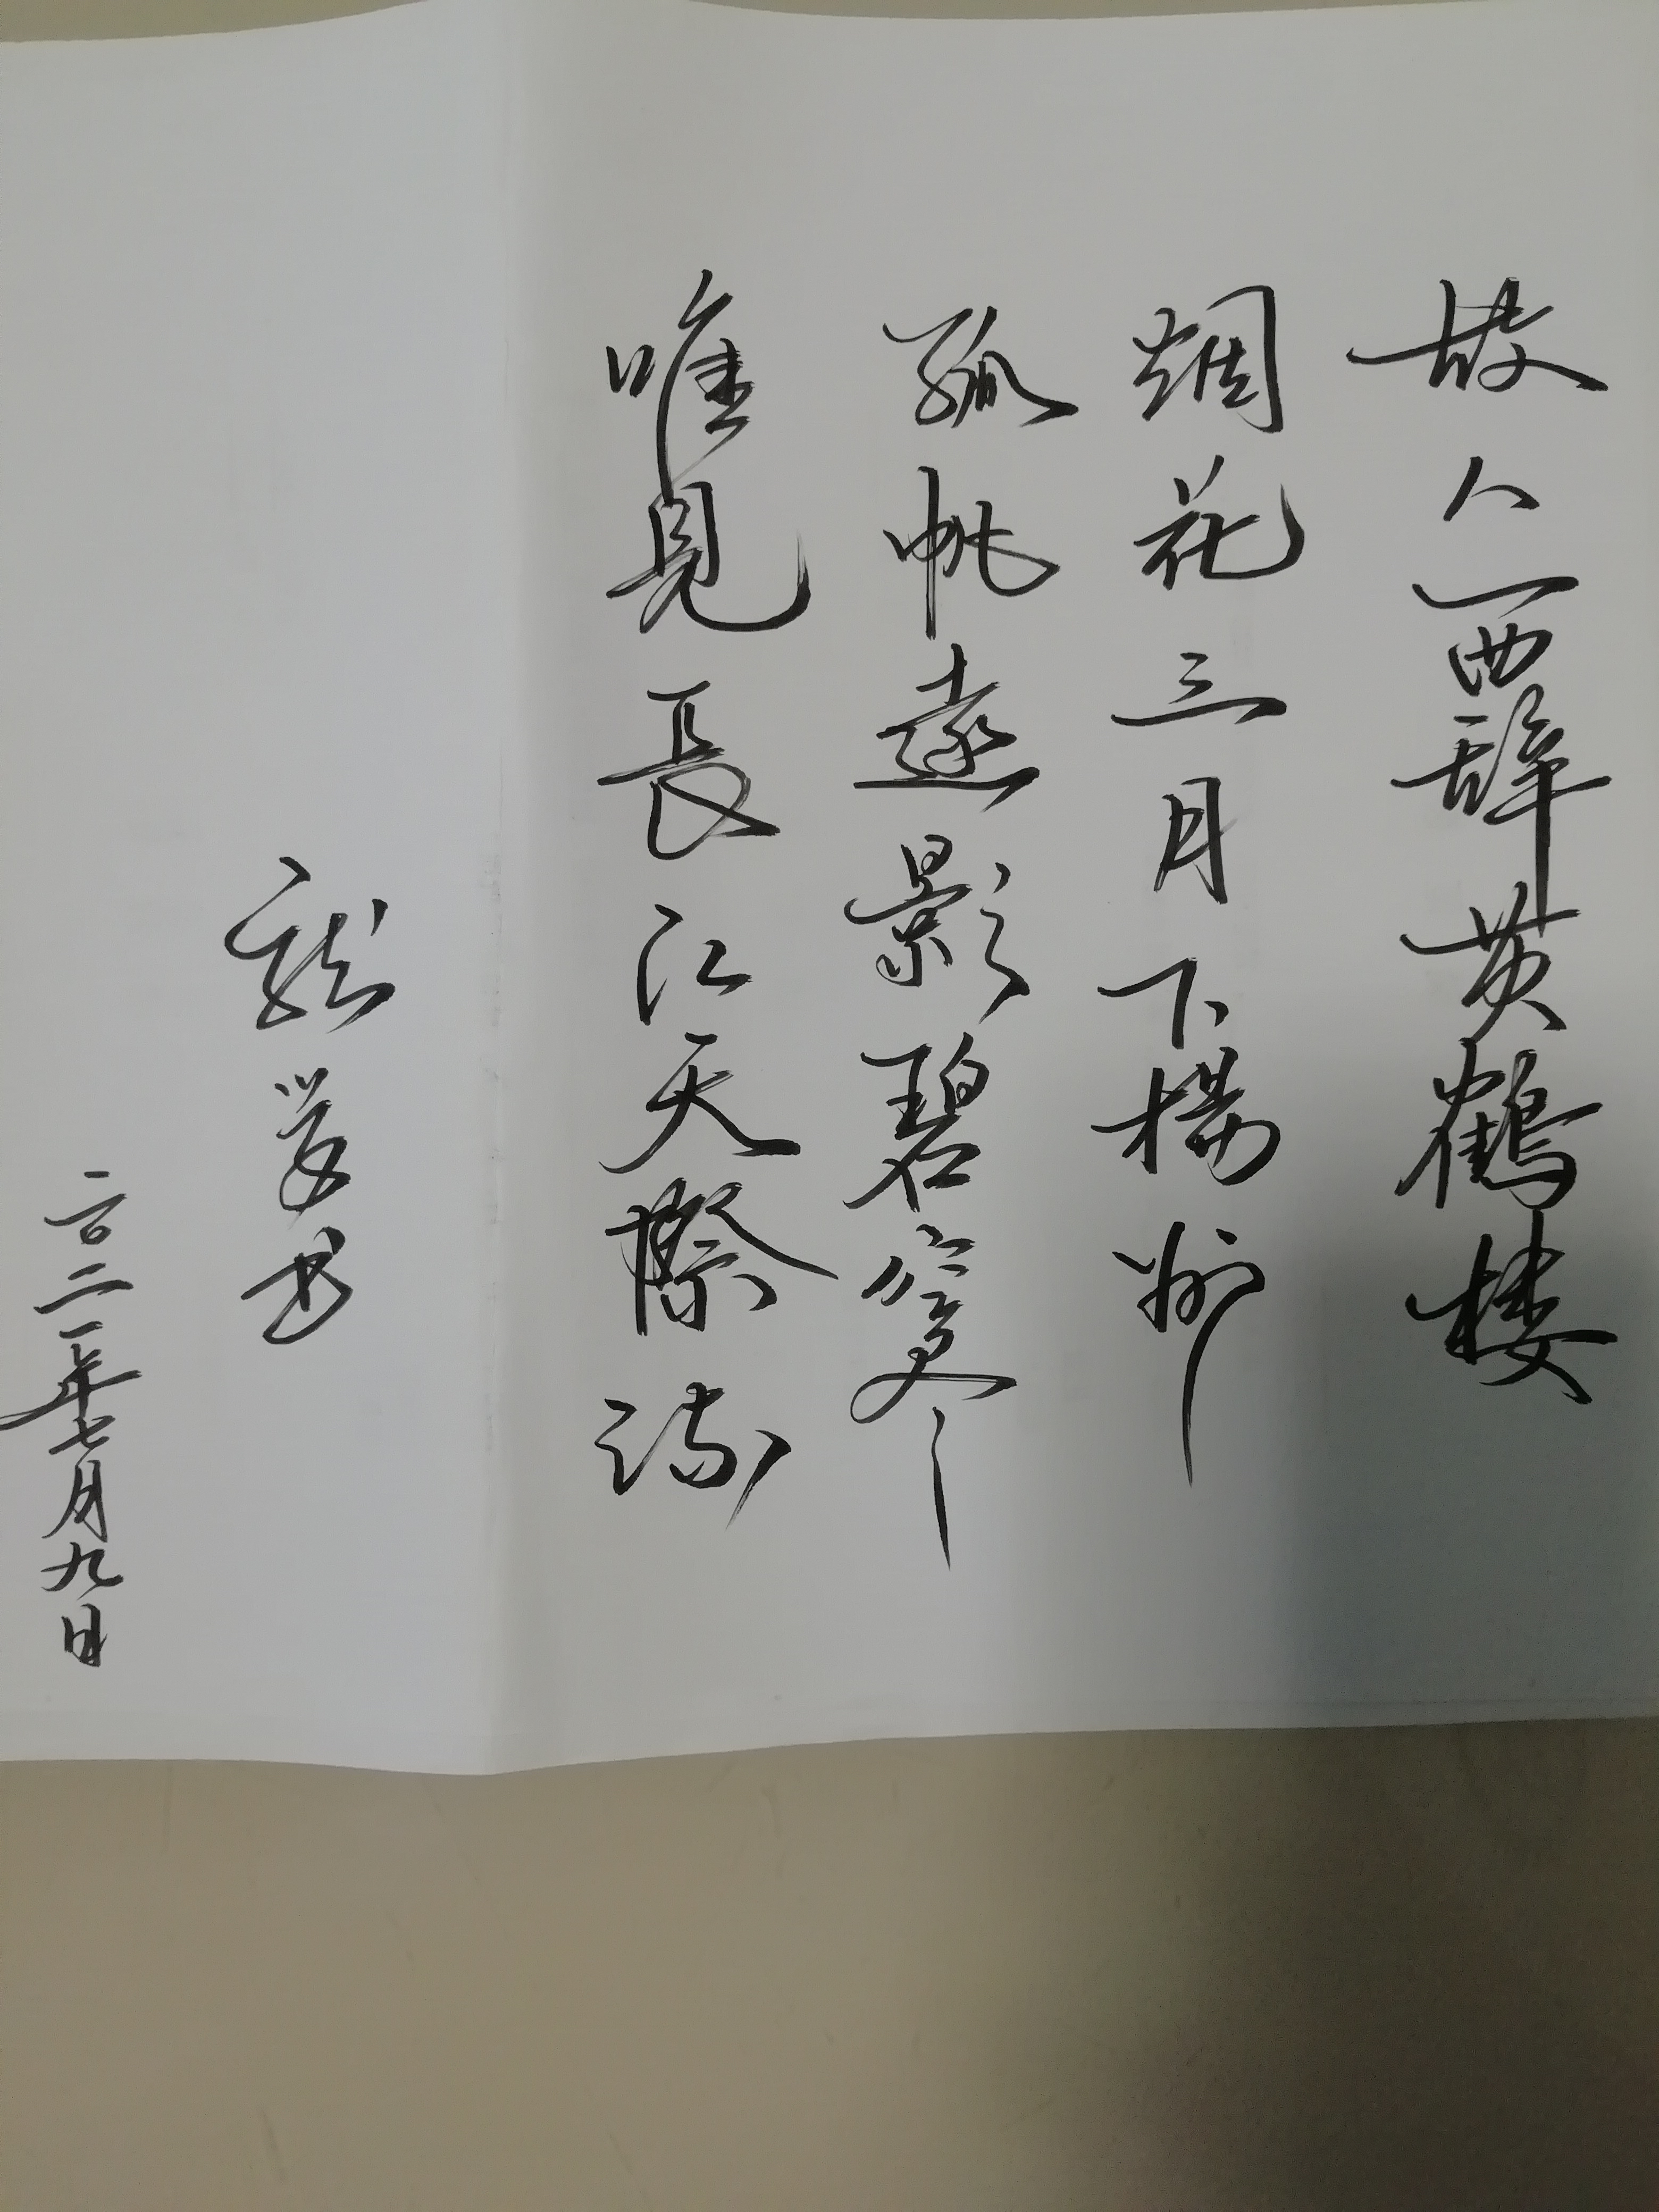 故人西辞黄鶴楼
烟花三月下揚州
孤帆遠影碧空尽
唯見長江天際流
书
二〇二一年七月九日